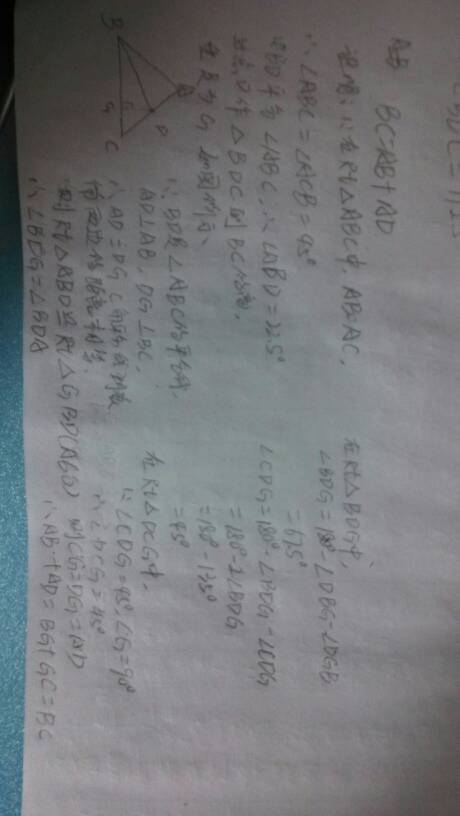 BC=AB+AD
证明:∵在Rt△ABC中,AB=AC,
∴∠ABC=∠ACB=45°
BD平分∠ABC,∴∠ABD=22.5°
过点D作△BDC的BC边高,
交点为G,如图所示、
B
A
D
G
C
∵BD是∠ABC的平分线,
AD⊥AB,DG⊥BC,
∴AD=DG(角平分线到
角两边的距离相等)
则Rt△ABD≌Rt△GBD(AGD)
∴∠BDG=∠BDA
在Rt△BDG中,
∠BDG=180°-∠DBG-∠DGB
=67.5°
∠CDG=180°-∠BDG-∠CDG
=180°-2∠BDG
=180°-135°
=45°
在Rt△DCG中,
∵∠CDG=45°,∠G=90°
∴∠DCG=45°
则CG=DG=AD
∴AB+AD=BG+GC=BC